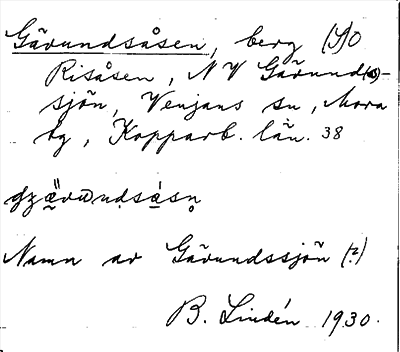 Gävundsåsen, berg (S)O
Risåsen, NV Gävund(s)-
sjön, Venjans sn, Mora
tg, Kopparb. län. 38
Namn av Gävundssjön (?)
B. Lindén 1930.